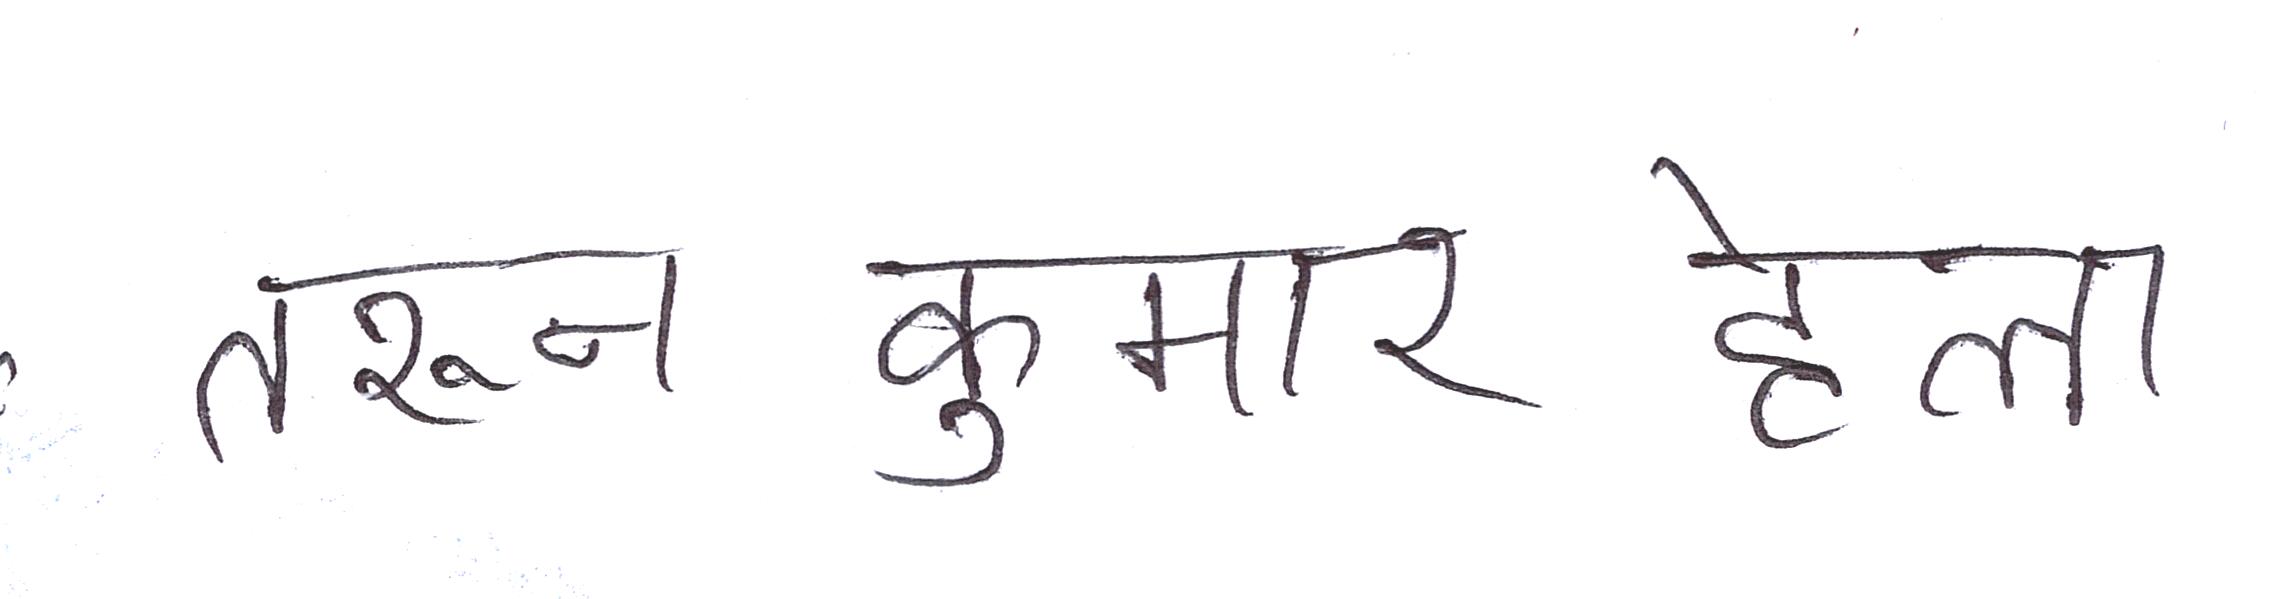 तरून कुमार हेला